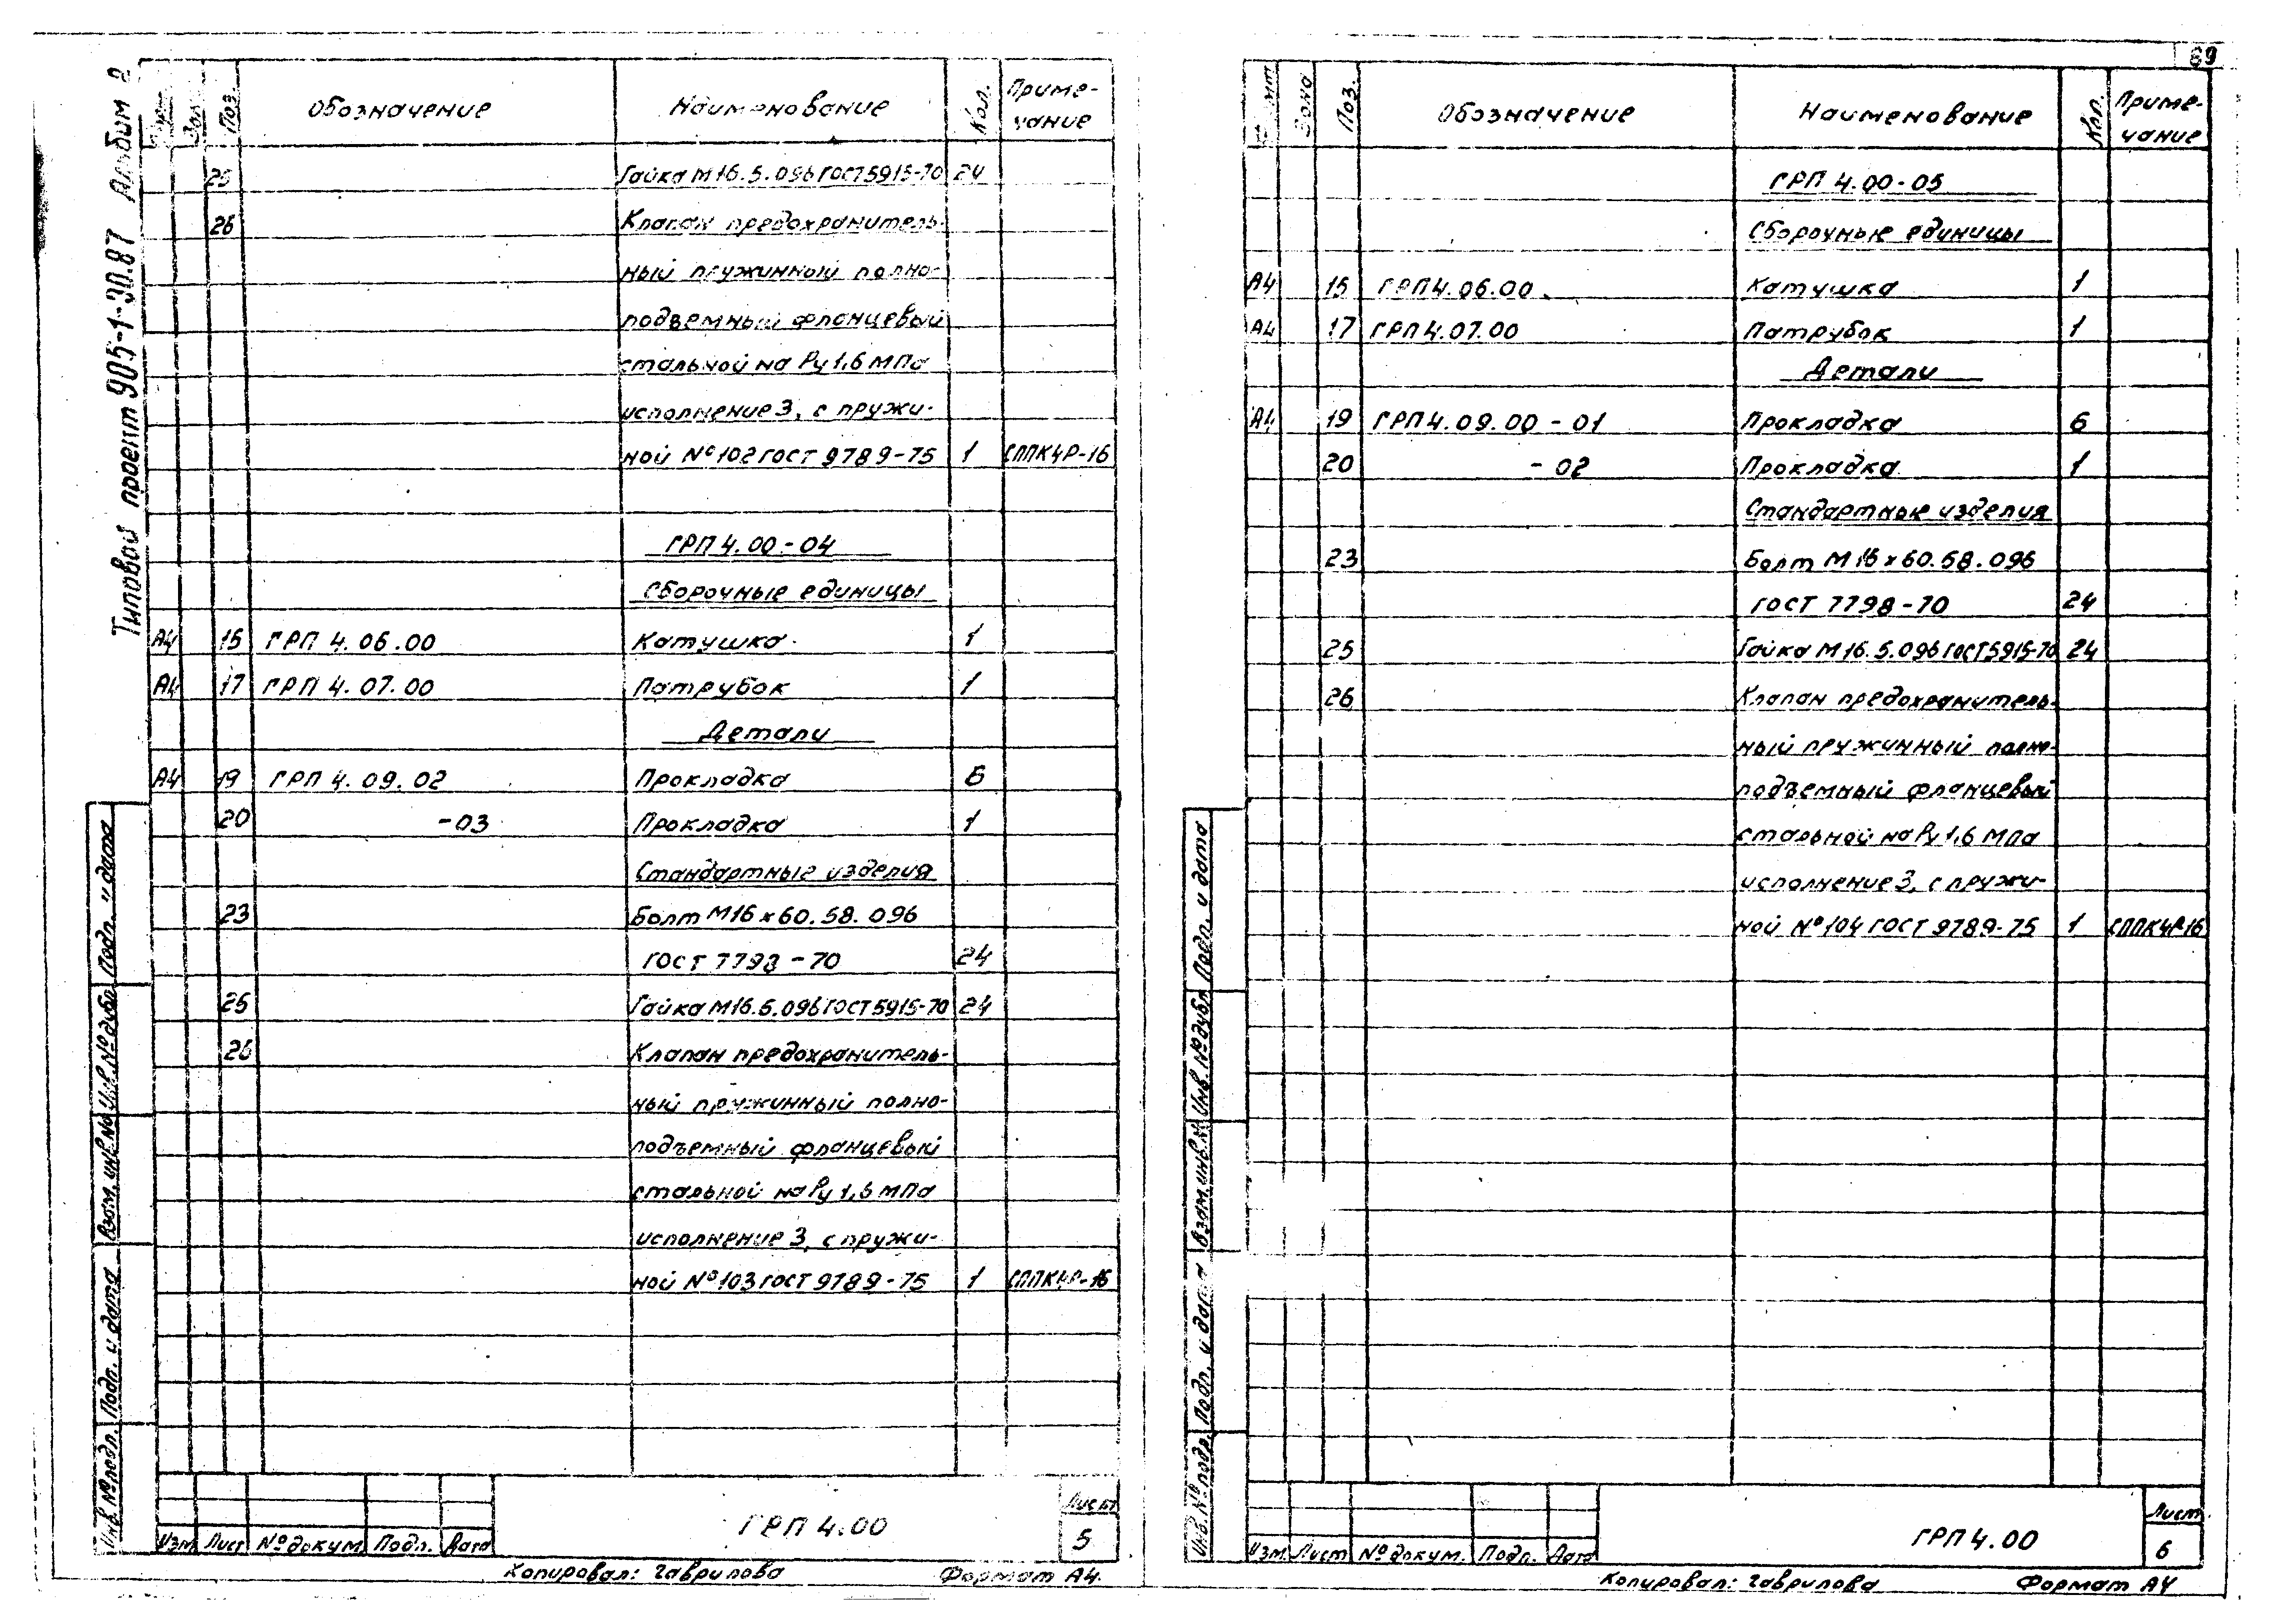 89
Типовой проект 905-1-30.87 Альбом 2
Поз. Обозначение Наименование Кол. Приме-
чание
25 Гайка М16.5.096 ГОСТ 5915-70 24
26 Клапан предохранитель-
ный пружинный полно-
подъемный фланцевый
стальной на Ру 1,6 МПа
исполнение 3, с пружи-
ной № 102 ГОСТ 9789-75 1 СППК4Р-16
ГРП 4.00-04
Сборочные единицы
А4 15 ГРП 4.06.00 Катушка 1
А4 17 ГРП 4.07.00 Патрубок 1
Детали
А4 19 ГРП 4.09.02 Прокладка 6
20 -03 Прокладка 1
Стандартные изделия
23 Болт М16х60.58.096
ГОСТ 7798-70 24
25 Гайка М16.5.096 ГОСТ 5915-70 24
26 Клапан предохранитель-
ный пружинный полно-
подъемный фланцевый
стальной на Ру 1,6 МПа
исполнение 3, с пружи-
ной № 103 ГОСТ 9789-75 1 СППК4Р-16
Инв. № подл. Подп. и дата Взам. инв. № Инв. № дубл. Подп. и дата
Изм Лист № докум. Подп. Дата
ГРП 4.00
Лист
5
Копировал: Гаврилова Формат А4
Зона Поз. Обозначение Наименование Кол. Приме-
чание
ГРП 4.00-05
Сборочные единицы
А4 15 ГРП 4.06.00 Катушка 1
А4 17 ГРП 4.07.00 Патрубок 1
Детали
А4 19 ГРП 4.09.00-01 Прокладка 6
20 -02 Прокладка 1
Стандартные изделия
23 Болт М16х60.58.096
ГОСТ 7798-70 24
25 Гайка М16.5.096 ГОСТ 5915-70 24
26 Клапан предохранитель-
ный пружинный полно-
подъемный фланцевый
стальной на Ру 1,6 МПа
исполнение 3, с пружи-
ной № 104 ГОСТ 9789-75 1 СППК4Р-16
Инв. № подл. Подп. и дата Взам. инв. № Инв. № дубл. Подп. и дата
Изм. Лист № докум. Подп. Дата
ГРП 4.00
Лист
6
Копировал: Гаврилова Формат А4